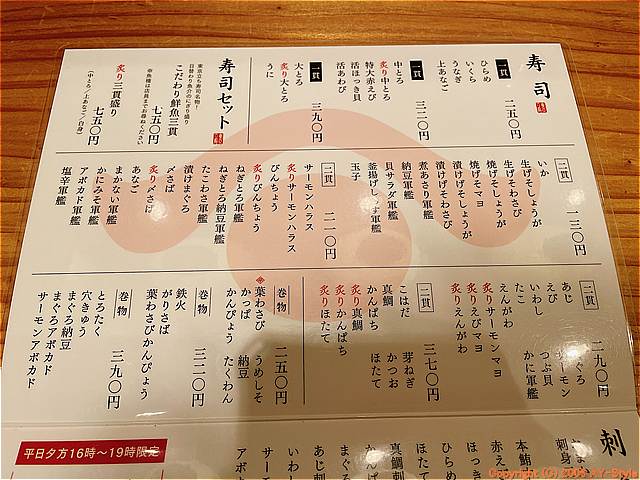 寿司
一貫 二五〇円
ひらめ
いくら
うなぎ
上あなご
一貫 三二〇円
中とろ
炙り中とろ
特大赤えび
活ほっき貝
活あわび
一貫 三九〇円
大とろ
炙り大とろ
うに
寿司セット
東京立ち寿司名物!
日替わり魚介のにぎり盛り
こだわり鮮魚三貫
七五〇円
※魚種は店員までお尋ねください
炙り三貫盛り
(中とろ/上あなご/白身)
七五〇円
二貫 一三〇円
いか
生げそしょうが
生げそわさび
焼げそしょうが
焼げそマヨ
漬けげそしょうが
漬けげそわさび
煮あさり軍艦
納豆軍艦
貝サラダ軍艦
釜揚げしらす軍艦
玉子
二貫 二一〇円
サーモンハラス
炙りサーモンハラス
びんちょう
炙りびんちょう
ねぎとろ軍艦
ねぎとろ納豆軍艦
たこわさ軍艦
漬けまぐろ
〆さば
炙り〆さば
あなご
まかない軍艦
かにみそ軍艦
アボカド軍艦
塩辛軍艦
二貫 二九〇円
あじ まぐろ
えび サーモン
いわし つぶ貝
たこ かに軍艦
えんがわ
炙りサーモンマヨ
炙りえびマヨ
炙りえんがわ
二貫 三七〇円
こはだ 芽ねぎ
真鯛 かつお
かんぱち ほたて
炙り真鯛
炙りかんぱち
炙りほたて
巻物 二五〇円
葉わさび うめしそ
かっぱ 納豆
かんぴょう たくわん
巻物 三二〇円
鉄火
がりさば
葉わさびかんぴょう
巻物 三九〇円
とろたく
穴きゅう
まぐろ納豆
まぐろアボカド
サーモンアボカド
平日夕方16時〜19時限定
刺
刺身
本鮪
赤え
ほっき
ひらめ
ほたて
真鯛刺
かんぱ
まぐろ
あじ刺
いわし
サーモ
アボカ
Copyright (C) 2008 AY-Style